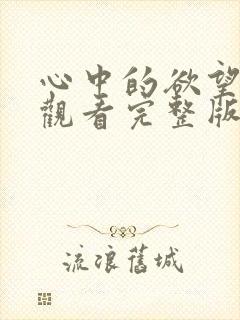 心中的欲望
觀看完整版
流浪舊城